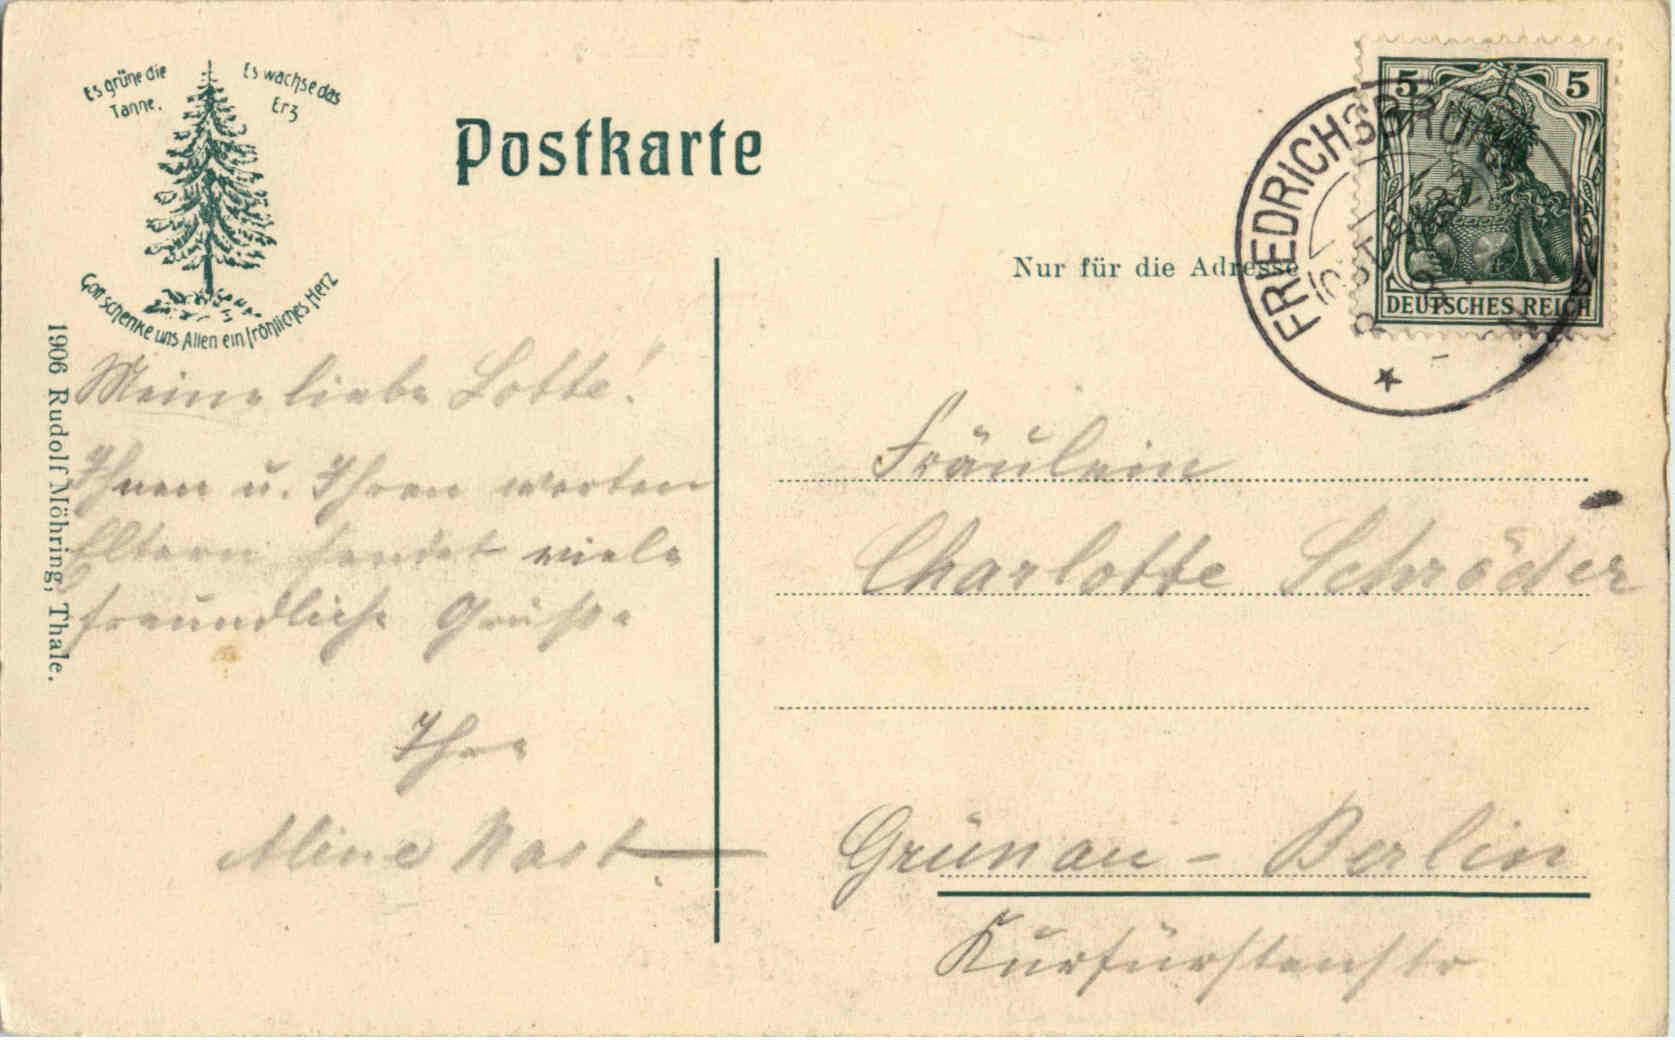 Es grüne die
Tanne.
Es wachse das
Erz
Gott schenke uns Allen ein fröhliches Herz
Postkarte
1906 Rudolf Möhring, Thale.
Nur für die Adresse
FRIEDRICHSBRUNN
5 5
DEUTSCHES REICH
Meine liebe Lotte!
Ihnen u. Ihren werten
Eltern sendet viele
freundliche Grüße
Ihre
Aline Nast
Fräulein
Charlotte Schröder
Grünau - Berlin
Kurfürstenstr